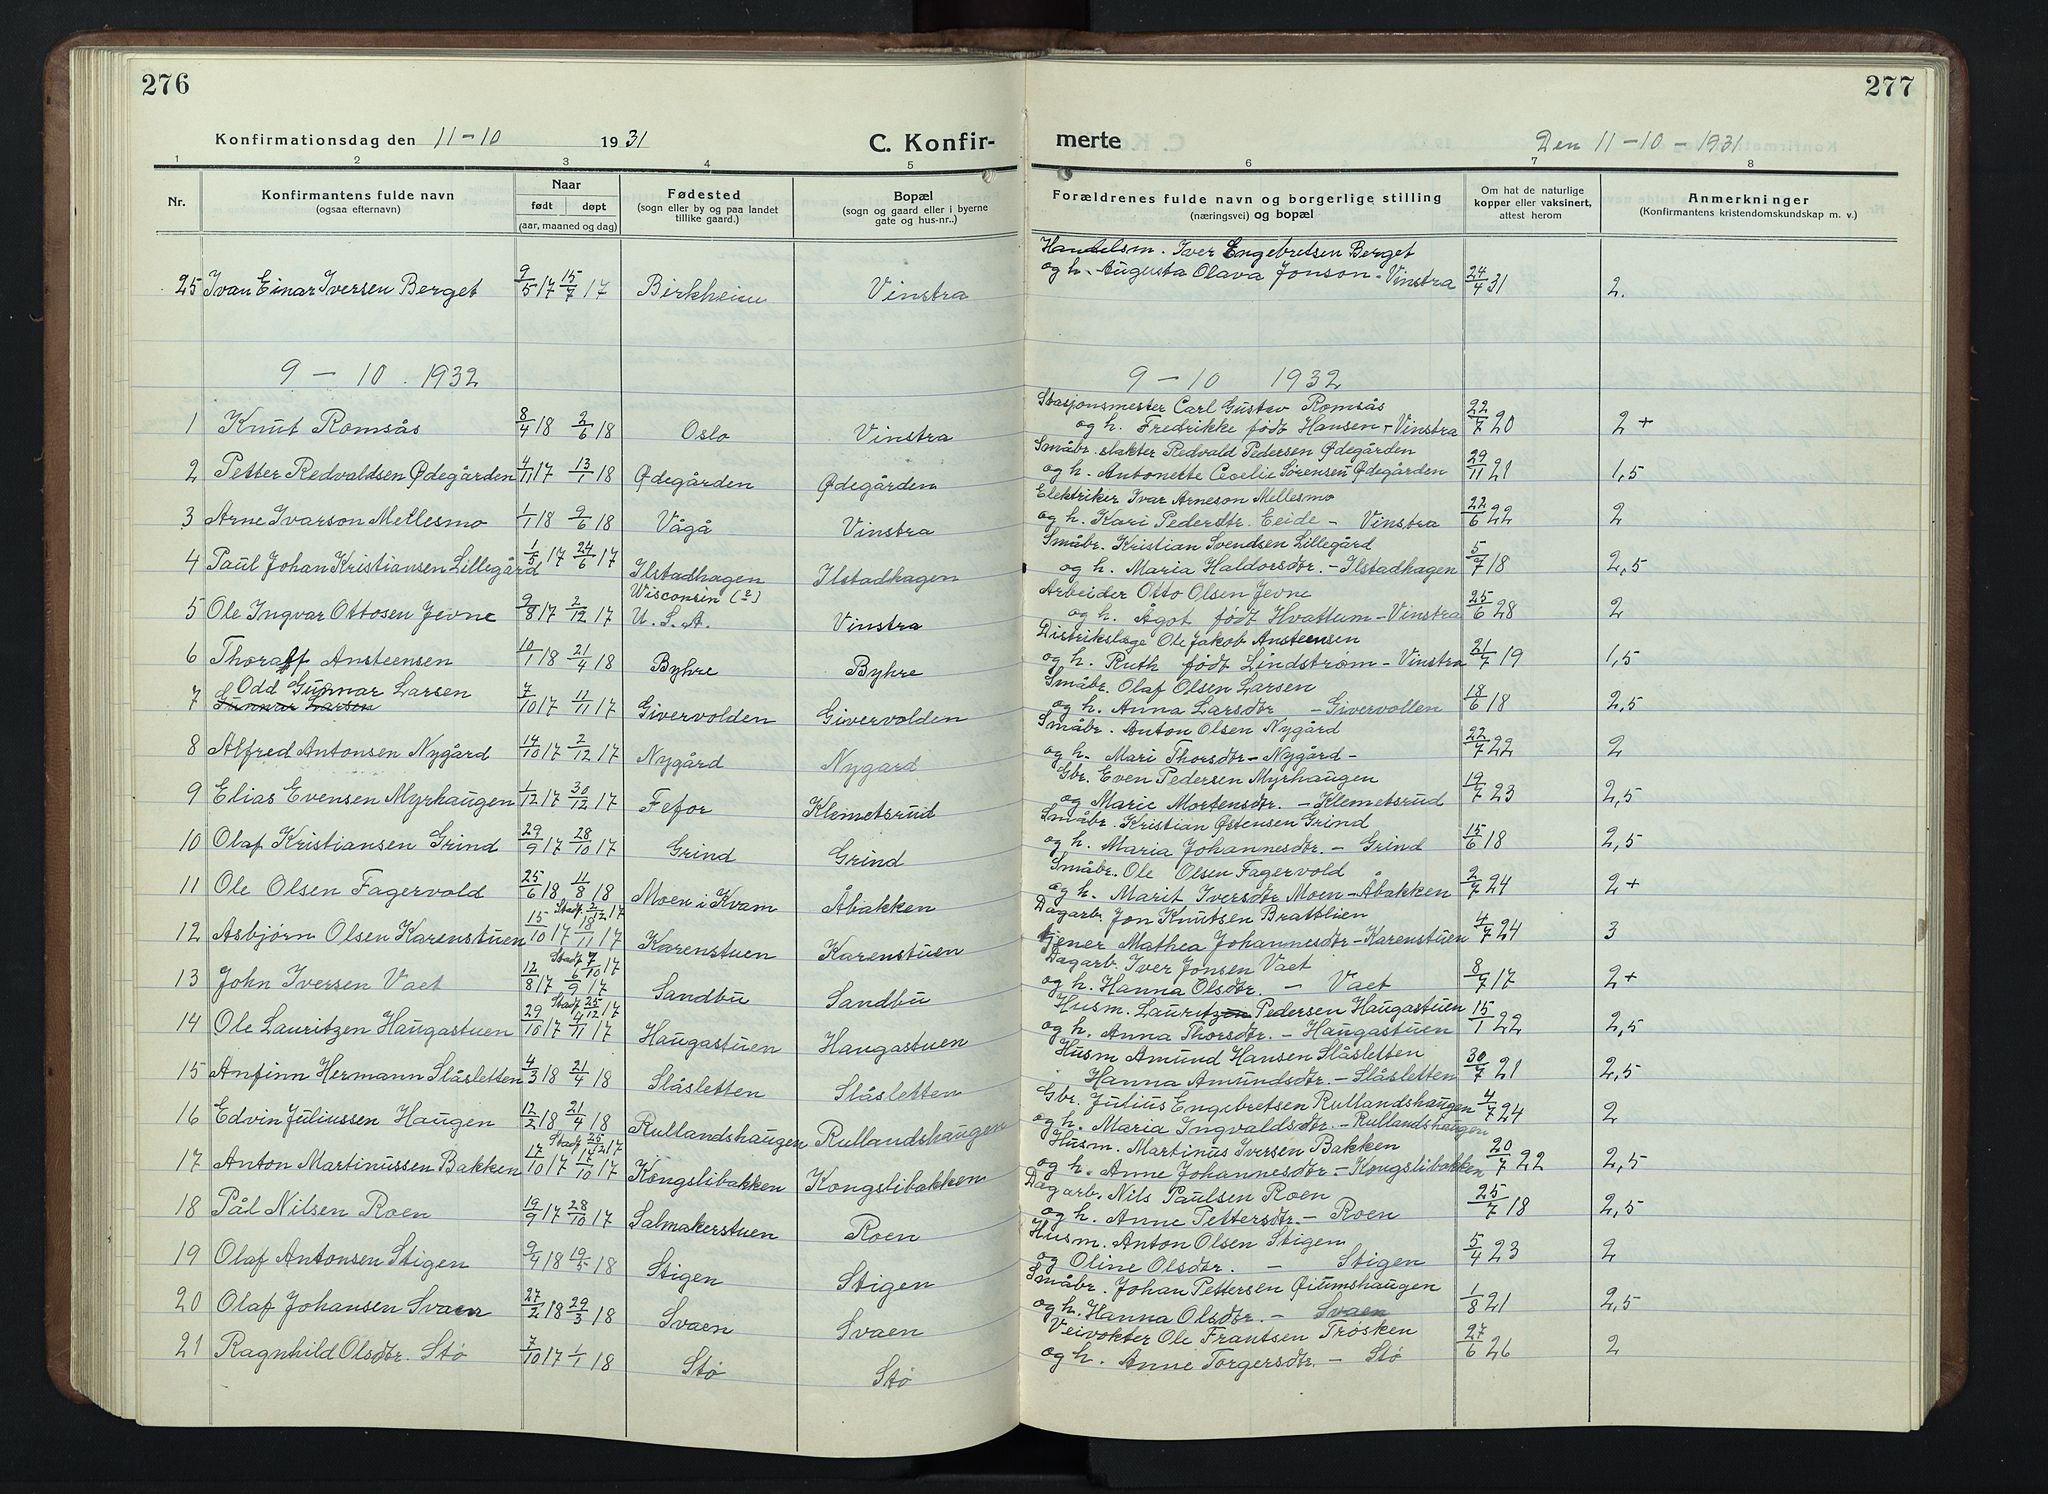 276
Konfirmationsdag den 11-10 1931
C. Konfir-
1 2 3 4 5
Nr.
Konfirmantens fulde navn
(ogsaa efternavn)
Naar
født døpt
(aar, maaned og dag)
Fødested
(sogn eller by og paa landet
tillike gaard.)
Bopæl
(sogn og gaard eller i byerne
gate og hus-nr..)
25 Ivan Einar Iversen Berget 9/5 17 15/7 17 Birkheim Vinstra
9 - 10 . 1932
1 Knut Romsås 8/4 18 2/6 18 Oslo Vinstra
2 Petter Redvaldsen Ødegården 4/11 17 13/1 18 Ødegården Ødegården
3 Arne Ivarson Mellesmo 1/1 18 9/6 18 Vågå Vinstra
4 Paul Johan Kristiansen Lillegård 1/5 17 24/6 17 Ilstadhagen Ilstadhagen
5 Ole Ingvar Ottosen Jevne 9/8 17 2/12 17 Wisconsin (?) U. S. A. Vinstra
6 Thoralf Ansteensen 10/1 18 21/4 18 Byhre Byhre
Odd Gunnar Larsen
7 Gunnar Larsen 7/10 17 11/11 17 Givervolden Givervolden
8 Alfred Antonsen Nygård 14/10 17 2/12 17 Nygård Nygard
9 Elias Evensen Myrhaugen 1/12 17 30/12 17 Fefor Klemetsrud
10 Olaf Kristiansen Grind 29/9 17 28/10 17 Grind Grind
11 Ole Olsen Fagervold 25/6 18 11/8 18 Moen i Kvam Åbakken
12 Asbjørn Olsen Karenstuen 15/10 17 Stadf. 2/12 17 18/11 17 Karenstuen Karenstuen
13 John Iversen Vaet 12/8 17 Stadf. 7/10 17 6/9 17 Sandbu Sandbu
14 Ole Lauritzen Haugastuen 29/10 17 Stadf. 25/12 17 4/11 17 Haugastuen Haugastuen
15 Anfinn Hermann Slåsletten 4/3 18 21/4 18 Slåsletten Slåsletten
16 Edvin Juliussen Haugen 12/2 18 21/4 18 Rullandshaugen Rullandshaugen
17 Anton Martinussen Bakken 17/10 17 Stadf. 25/12 17 17/10 17 Kongslibakken Kongslibakken
18 Pål Nilsen Roen 19/9 17 28/10 17 Salmakerstuen Roen
19 Olaf Antonsen Stigen 9/4 18 19/5 18 Stigen Stigen
20 Olaf Johansen Svaen 27/2 18 29/3 18 Svaen Svaen
21 Ragnhild Olsdtr. Stø 7/10 17 1/1 18 Stø Stø
277
merte
Den 11-10-1931
6 7 8
Forældrenes fulde navn og borgerlige stilling
(næringsvei) og bopæl
Om hat de naturlige
kopper eller vaksinert,
attest herom
Anmerkninger
(Konfirmantens kristendomskundskap m. v.)
Handelsm. Iver Engebretsen Berget
og h. Augusta Olava Jonson - Vinstra 24/4 31 2.
9 - 10 1932
Stasjonsmester Carl Gustav Romsås
og h. Fredrikke født Hansen - Vinstra 22/7 20 2+
Småbr. slakter Redvald Pedersen Ødegården
og h. Antonette Cecelie Sørensen Ødegården 29/11 21 1,5
Elektriker Ivar Arneson Mellesmo
og h. Kari Pedersdtr. Eeide - Vinstra 22/6 22 2
Småbr. Kristian Svendsen Lillegård
og h. Maria Haldorsdtr. - Ilstadhagen 5/7 18 2,5
Arbeider Otto Olsen Jevne
og h. Ågot født Hvattum - Vinstra 25/6 28 2
Distrikslæge Ole Jakob Ansteensen
og h. Ruth født Lindstrøm - Vinstra 21/7 19 1,5
Småbr. Olaf Olsen Larsen
og h. Anna Larsdtr - Givervollen 18/6 18 2,5
Småbr. Anton Olsen Nygård
og h. Mari Thorsdtr - Nygård - 22/7 22 2
Gbr. Even Pedersen Myrhaugen
og Marie Mortensdtr. - Klemetsrud 19/7 23 2,5
Småbr. Kristian Østensen Grind
og h. Maria Johannesdtr. - Grind 15/6 18 2,5
Småbr. Ole Olsen Fagervold
og h. Marit Iversdtr Moen - Åbakken 2/7 24 2+
Dagarb. Jon Knutsen Brattlien
tjener Mathea Johannesdtr - Karenstuen 4/7 24 3
Dagarb. Iver Jonsen Vaet
og h. Hanna Olsdtr. - Vaet 8/7 17 2+
Husm. Lauritzen Pedersen Haugastuen
og h. Anna Thorsdtr. - Haugastuen 15/1 22 2,5
Husm Amund Hansen Slåsletten
Hanna Amundsdtr. - Slåsletten 30/7 21 2,5
Gbr. Julius Engebretsen Rullandshaugen
og h. Maria Ingvaldsdtr. - Rullandshaugen 4/7 24 2
Husm. Martinus Iversen Bakken
og h. Anne Johannesdtr - Kongslibakken 20/7 22 2,5
Dagarb. Nils Paulsen Roen
og h. Anne Pettersdtr. - Roen 25/7 18 2,5
Husm. Anton Olsen Stigen
og Oline Olsdtr. - Stigen 5/4 23 2
Småbr. Johan Pettersen Øiumshaugen
og h. Hanna Olsdtr. - Svaen 1/8 21 2,5
Veivokter Ole Frantsen Trøsken
og h. Anne Torgersdtr. - Stø 27/6 26 2